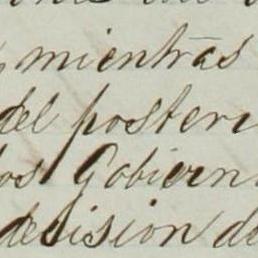 mientras
del posteri
los Gobiern
desision de